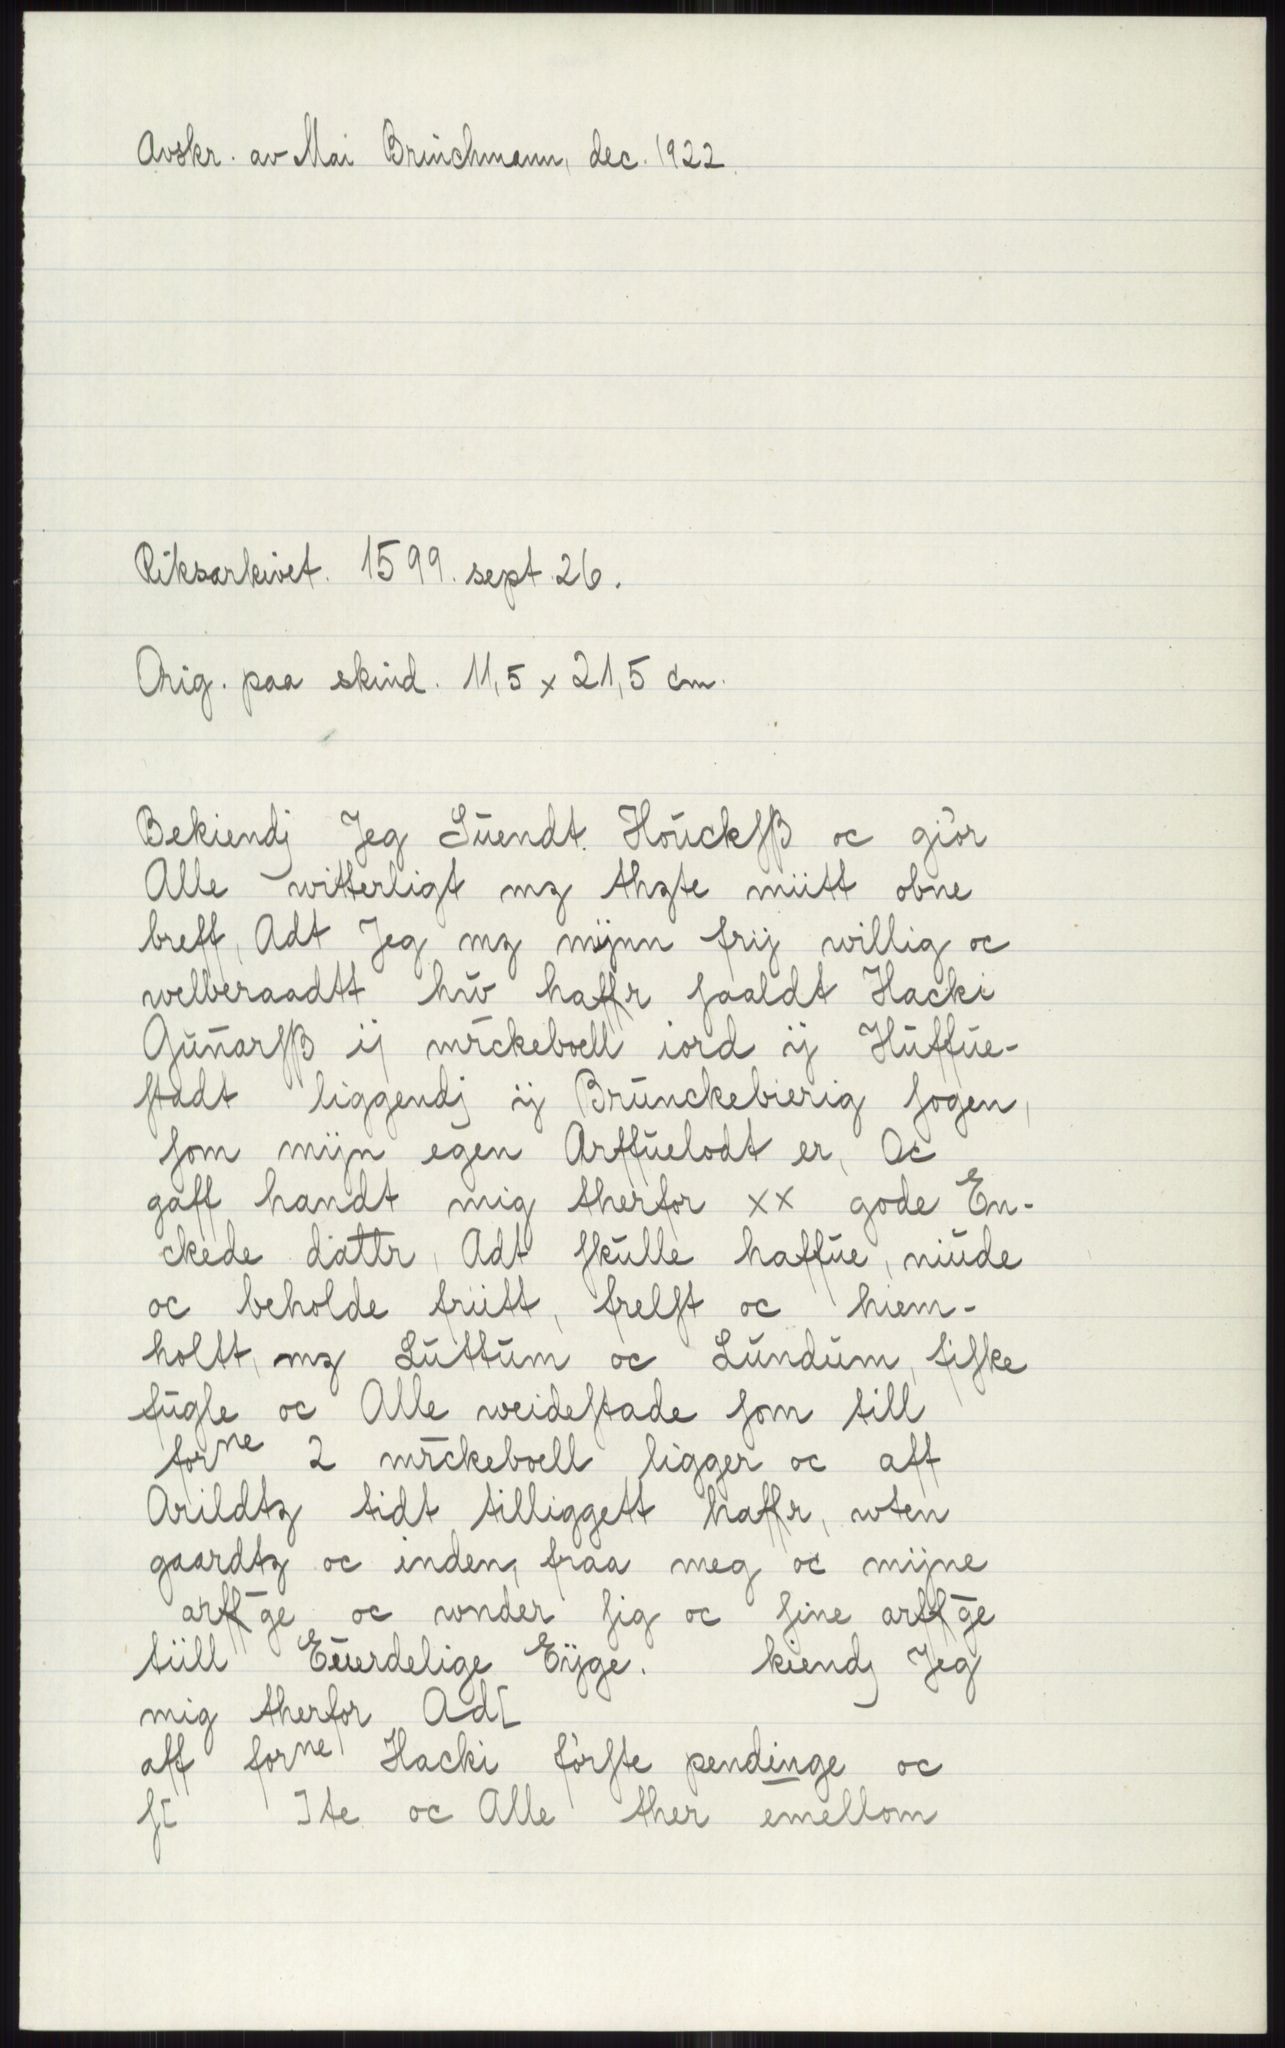 Avskr. av Mai Brinchmann, dec. 1922.
Riksarkivet. 1599. sept. 26.
Orig. paa skind. 11,5 x 21,5 cm.
Bekiendj Jeg Suendt Houckſß oc giör
Alle witterligt mz thzte miitt obne
breff, Adt Jeg mz mijnn frij willig oc
welberaadtt hw haffr ſaaldt Hacki
Gun̄arſß ij mr̄ckeboell iord ij Huffue-
ſtadt liggendj ij Brunckebierig ſogen,
ſom mijn egen Arffuelodt er, Oc
gaff handt mig therfor xx gode En-
ckede dattr, Adt ſkulle haffue, niude
oc beholde friitt, frelſt oc hiem-
holtt, mz Luttum oc Lundum, fiſke
fugle oc Alle weideſtade ſom till
forne 2 mr̄ckeboell ligger oc aff
Arildtz tidt tilliggett haffr, wten
gaardtz oc inden, fraa meg oc mijne
arff̄ge oc wnder ſig oc ſine arff̄ge
tiill Euerdelige Eyge. kiendj Jeg
mig therfor Ad[
aff forne Hacki förſte pendinge oc
ſ[ ]te oc Alle ther emellom